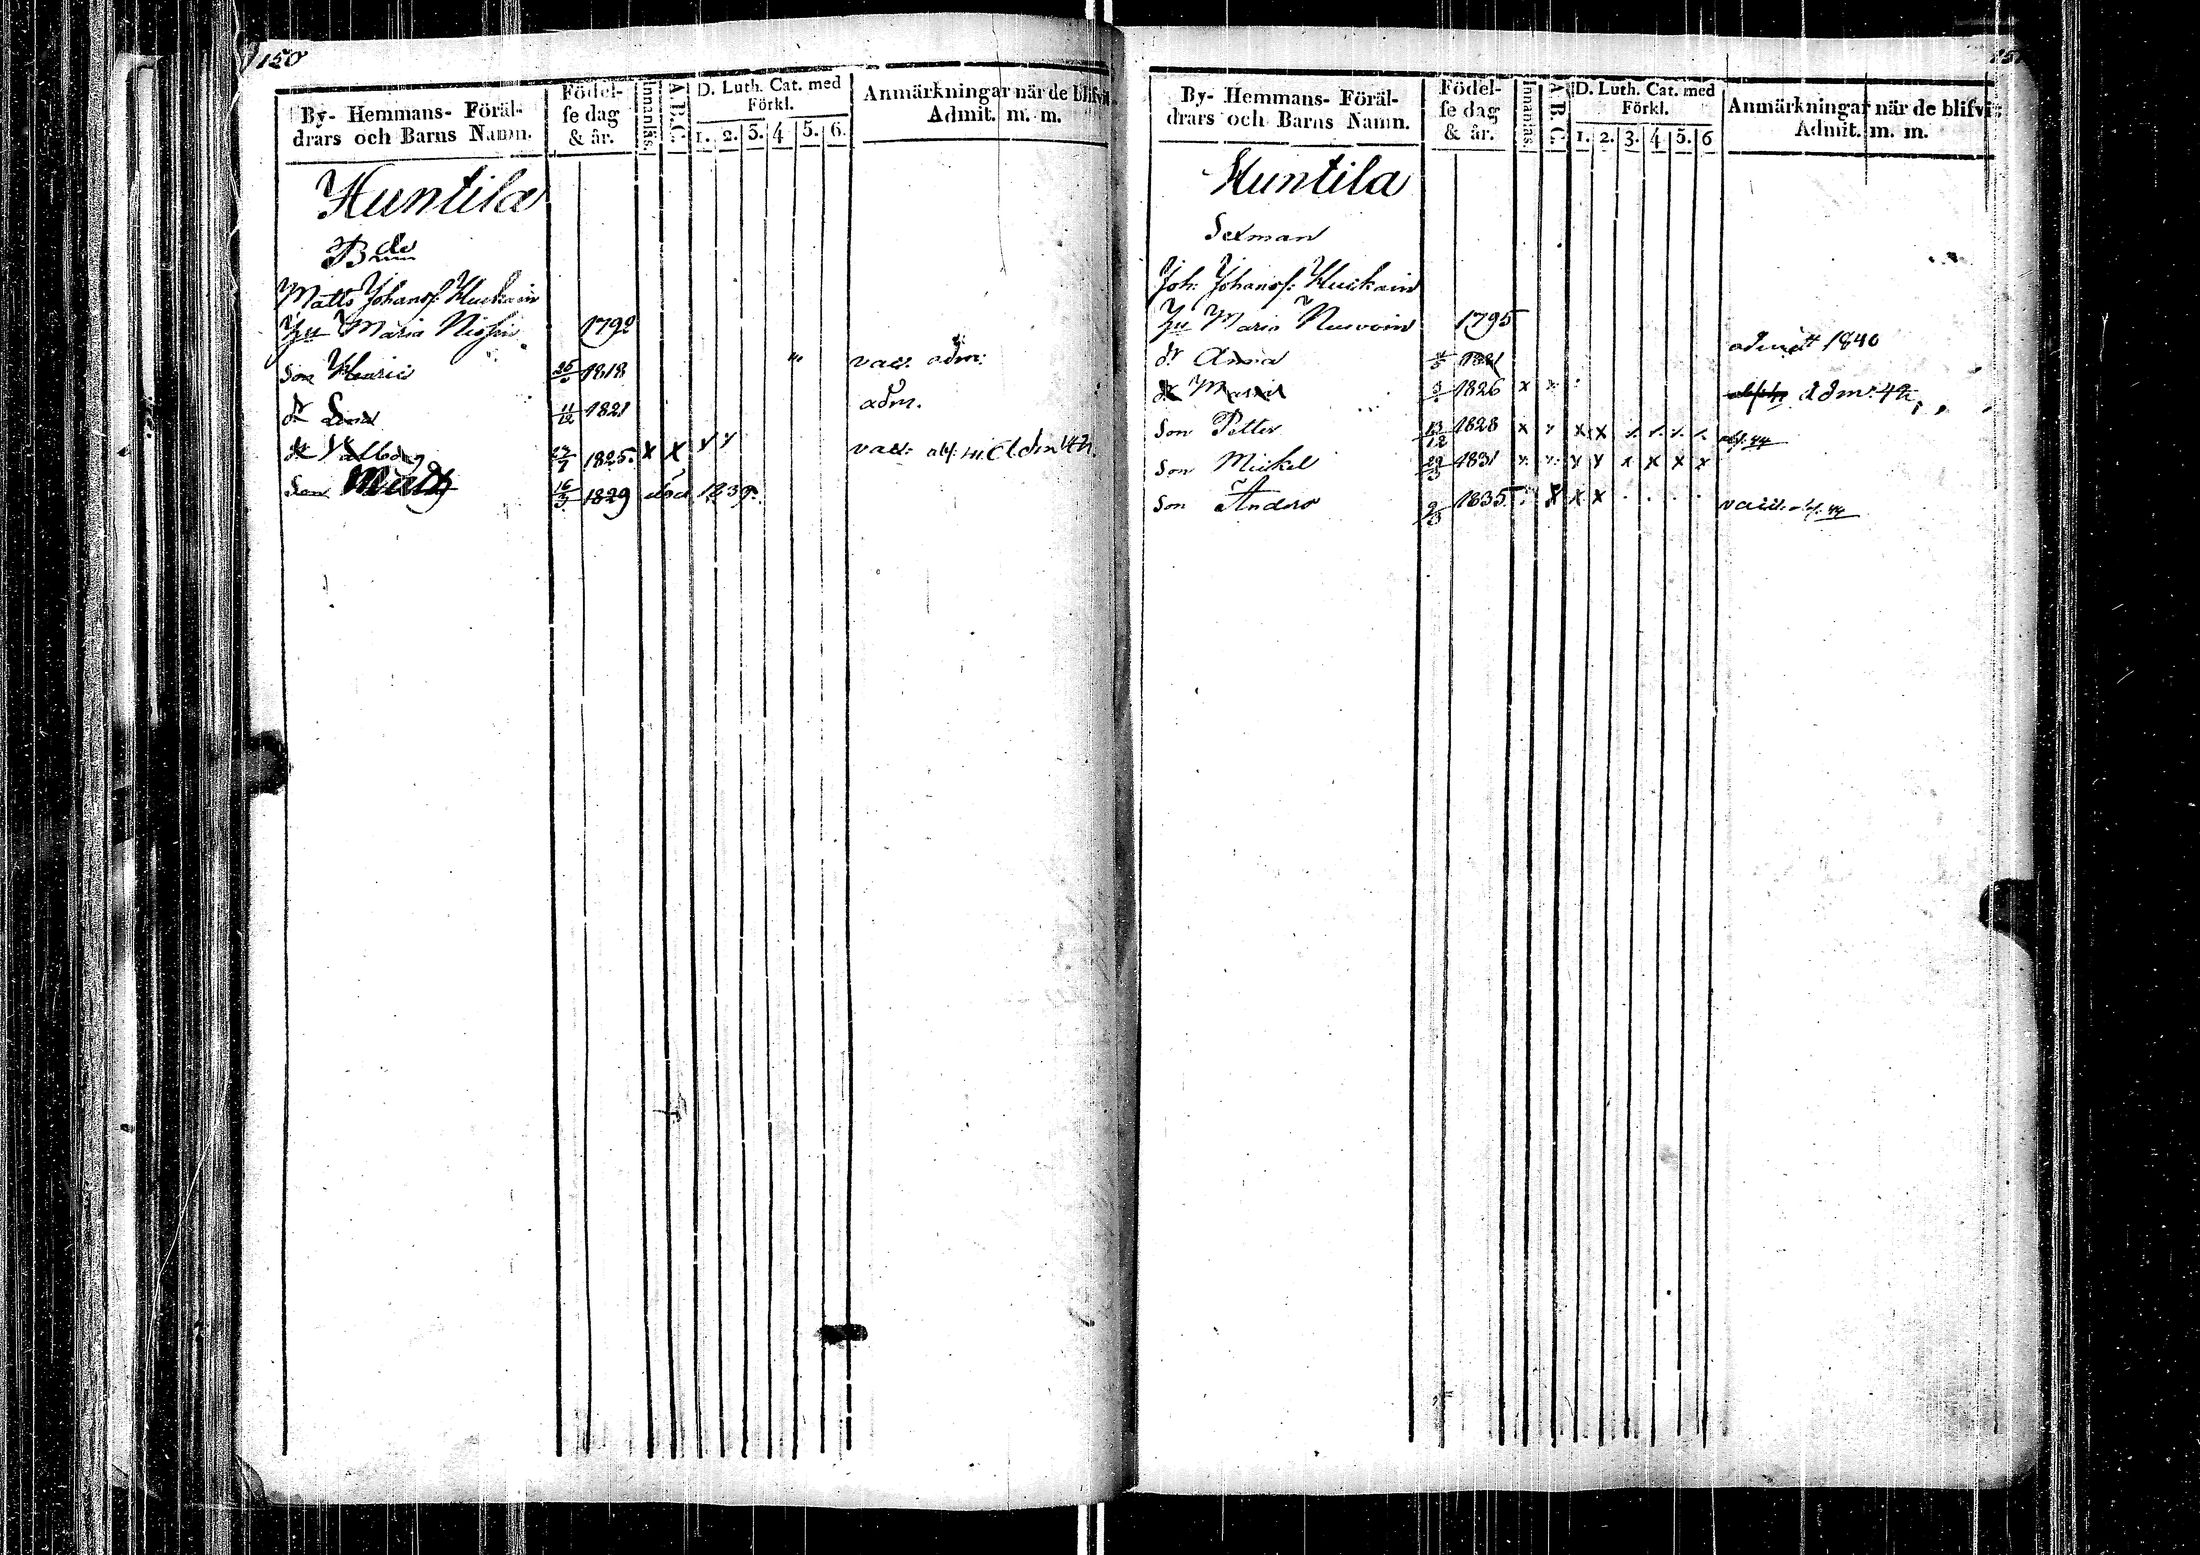 150
By- Hemmans- Föräl-
drars och Barns Namn.
Födel-
se dag
& år.
Innanläs.
A.B.C.
D. Luth. Cat. med
Förkl.
1. 2. 3. 4 5. 6.
Anmärkningar när de blifvit
Admit. m. m.
Huntila
Matts Johansf: Huckain
Hu Maria 1792
Son Henric 25 1818 vac: adm:
dr Lena 11/12 1821 adm.
dr Valborg 24/7 1825. x x y y vac: abf: Adm 42.
Son 16/3 1829 död 1839.
151
By- Hemmans- Föräl-
drars och Barns Namn.
Födel-
se dag
& år.
Innanläs.
A.B.C.
D. Luth. Cat. med
Förkl.
1. 2. 3. 4 5. 6
Anmärkningar när de blifvit
Admit. m. m.
Huntila
Sexman
Joh: Johansf: Huckain
Hu Maria 1795
dr Anna 1821 admitt 1840
dr Maria 1826 x x adm: 42
Son Petter 13/12 1828 x y x x abf. 44
Son Mickel 29/3 1831 y y y y x x x x
Son Anders 9/3 1835 x x x vacc. abf. 44